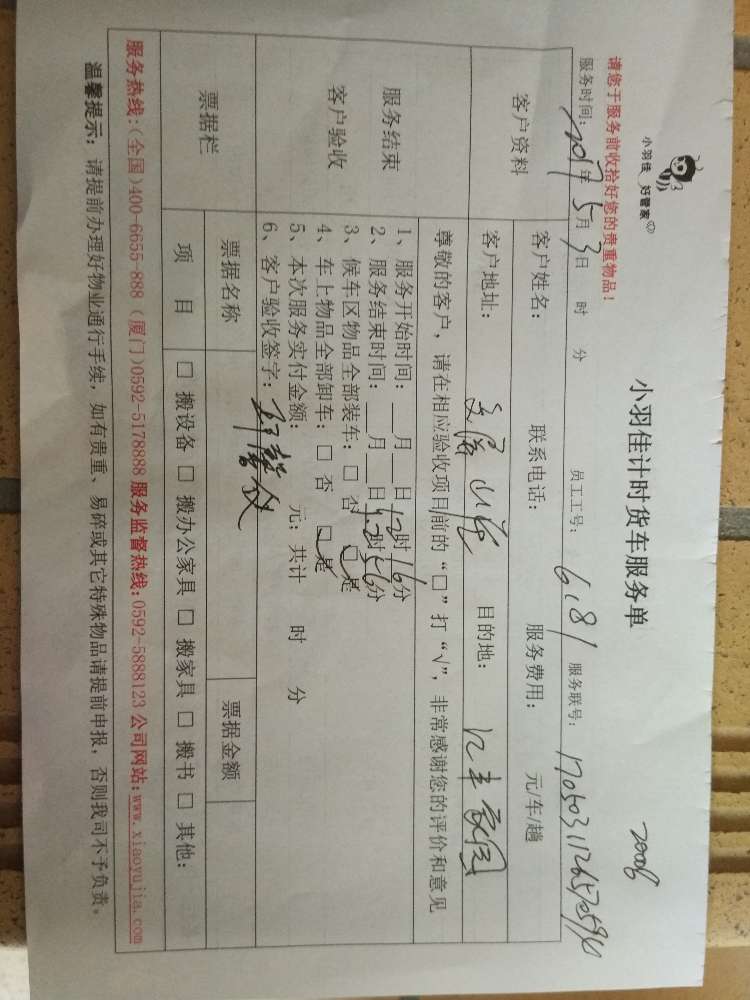 小羽佳 好管家
小羽佳计时货车服务单
20006
请您于服务前收拾好您的贵重物品！
服务时间：2017年5月3日 时 分 员工工号：6181 服务联号：
客户资料
客户姓名： 联系电话： 服务费用： 元/车/趟
客户地址： 目的地：
服务结束
客户验收
尊敬的客户，请在相应验收项目前的“□”打“√”，非常感谢您的评价和意见
1、服务开始时间：__月__日12时16分
2、服务结束时间：__月__日12时56分
3、候车区物品全部装车：□ 否 □ 是
4、车上物品全部卸车：□ 否 □ 是
5、本次服务实付金额： 元；共计 时 分
6、客户验收签字：
票据栏
票据名称 票据金额
项 目 □ 搬设备 □ 搬办公家具 □ 搬家具 □ 搬书 □ 其他：
服务热线：(全国)400-6655-888 (厦门)0592-5178888 服务监督热线：0592-5888123 公司网站：www.xiaoyujia.com
温馨提示：请提前办理好物业通行手续，如有贵重、易碎或其它特殊物品请提前申报，否则我司不予负责。